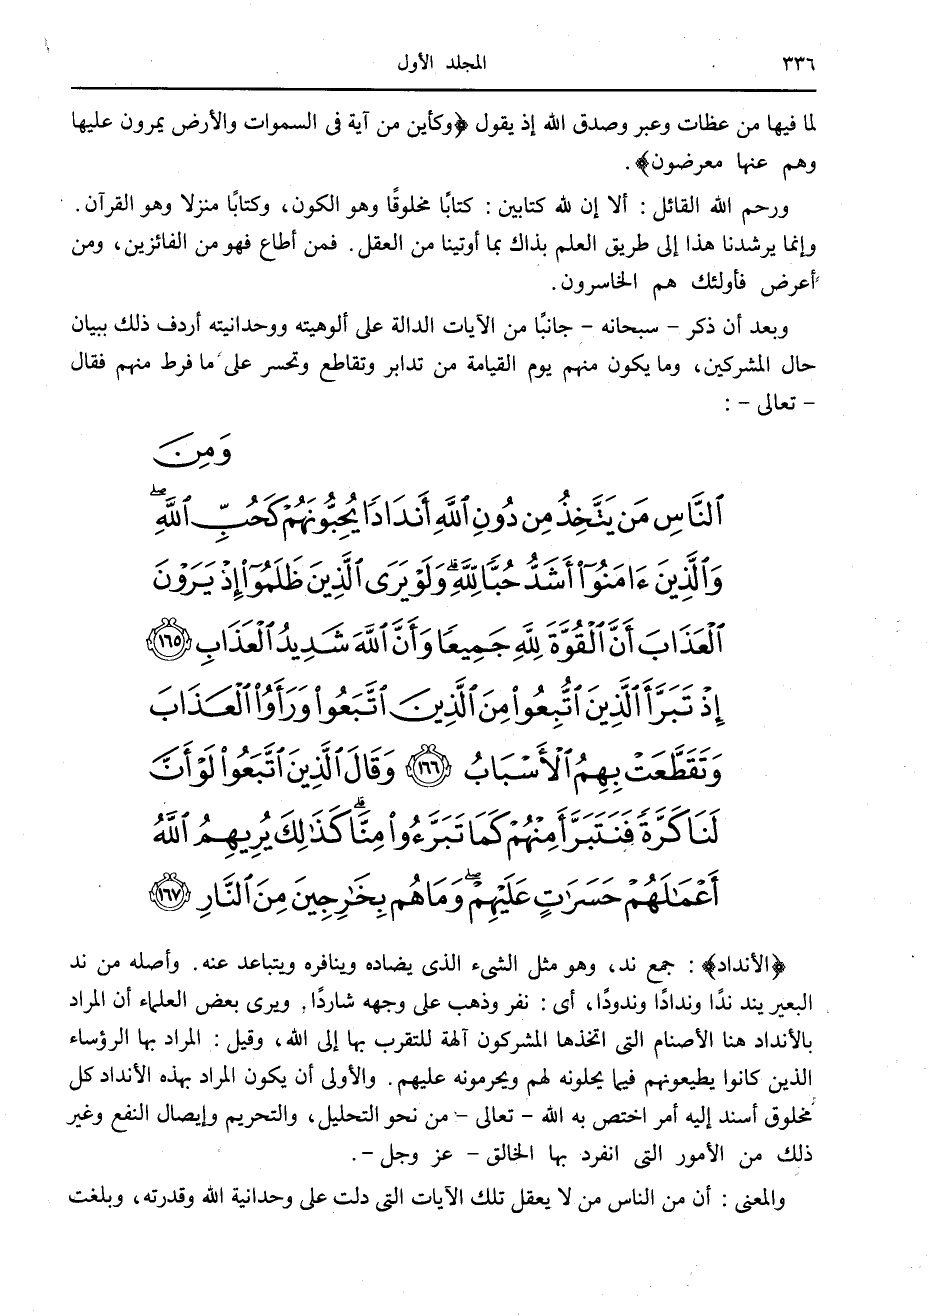 ٣٣٦
المجلد الأول
لما فيها من عظات وعبر وصدق الله إذ يقول ﴿وكأين من آية فى السموات والأرض يمرون عليها
وهم عنها معرضون﴾ .
ورحم الله القائل : ألا إن لله كتابين : كتابًا مخلوقًا وهو الكون، وكتابًا منزلا وهو القرآن .
وإنما يرشدنا هذا إلى طريق العلم بذاك بما أوتينا من العقل . فمن أطاع فهو من الفائزين، ومن
أعرض فأولئك هم الخاسرون .
وبعد أن ذكر – سبحانه – جانبًا من الآيات الدالة على ألوهيته ووحدانيته أردف ذلك ببيان
حال المشركين، وما يكون منهم يوم القيامة من تدابر وتقاطع وتحسر على ما فرط منهم فقال
– تعالى – :
وَمِنَ
ٱلنَّاسِ مَن يَتَّخِذُ مِن دُونِ ٱللَّهِ أَندَادًا يُحِبُّونَهُمْ كَحُبِّ ٱللَّهِۖ
وَٱلَّذِينَ ءَامَنُوٓا۟ أَشَدُّ حُبًّا لِّلَّهِۗ وَلَوْ يَرَى ٱلَّذِينَ ظَلَمُوٓا۟ إِذْ يَرَوْنَ
ٱلْعَذَابَ أَنَّ ٱلْقُوَّةَ لِلَّهِ جَمِيعًا وَأَنَّ ٱللَّهَ شَدِيدُ ٱلْعَذَابِ ١٦٥
إِذْ تَبَرَّأَ ٱلَّذِينَ ٱتُّبِعُوا۟ مِنَ ٱلَّذِينَ ٱتَّبَعُوا۟ وَرَأَوُا۟ ٱلْعَذَابَ
وَتَقَطَّعَتْ بِهِمُ ٱلْأَسْبَابُ ١٦٦ وَقَالَ ٱلَّذِينَ ٱتَّبَعُوا۟ لَوْ أَنَّ
لَنَا كَرَّةً فَنَتَبَرَّأَ مِنْهُمْ كَمَا تَبَرَّءُوا۟ مِنَّاۗ كَذَٰلِكَ يُرِيهِمُ ٱللَّهُ
أَعْمَٰلَهُمْ حَسَرَٰتٍ عَلَيْهِمْۖ وَمَا هُم بِخَٰرِجِينَ مِنَ ٱلنَّارِ ١٦٧
﴿الأنداد﴾ : جمع ند، وهو مثل الشىء الذى يضاده وينافره ويتباعد عنه . وأصله من ند
البعير يند ندًا وندادًا وندودًا، أى : نفر وذهب على وجهه شاردًا . ويرى بعض العلماء أن المراد
بالأنداد هنا الأصنام التى اتخذها المشركون آلهة للتقرب بها إلى الله، وقيل : المراد بها الرؤساء
الذين كانوا يطيعونهم فيما يحلونه لهم ويحرمونه عليهم . والأولى أن يكون المراد بهذه الأنداد كل
مخلوق أسند إليه أمر اختص به الله – تعالى – من نحو التحليل، والتحريم وإيصال النفع وغير
ذلك من الأمور التى انفرد بها الخالق – عز وجل –.
والمعنى : أن من الناس من لا يعقل تلك الآيات التى دلت على وحدانية الله وقدرته، وبلغت